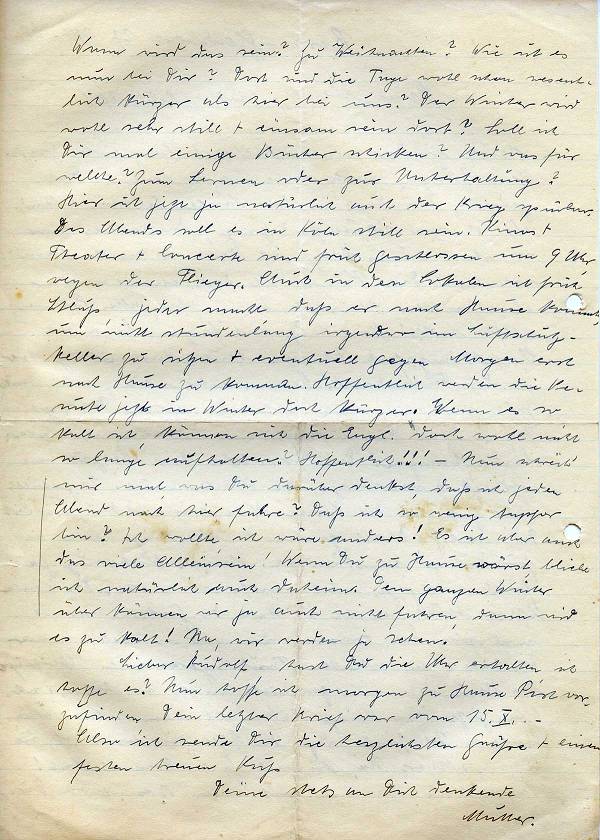 Wann wird das sein? Zu Weihnachten? Wie ist es
nun bei Dir? Dort sind die Tage wohl schon wesent-
lich kürzer als hier bei uns? Der Winter wird
wohl sehr still + einsam sein dort? Soll ich
Dir mal einige Bücher schicken? Und was für
welche? Zum Lernen oder zur Unterhaltung?
Hier ist jetzt ja natürlich auch der Krieg spürbar.
Des Abends soll es in Köln still sein. Kinos +
Theater + Concerte sind früh geschlossen um 9 Uhr
wegen der Flieger. Auch in den Lokalen ist früh
Schluß, jeder macht daß er nach Hause kommt,
um nicht stundenlang irgendwo im Luftschutz-
keller zu sitzen + eventuell gegen Morgen erst
nach Hause zu kommen. Hoffentlich werden die Be-
suche jetzt im Winter doch kürzer. Wenn es so
kalt ist, können sich die Engl. doch wohl nicht
so lange aufhalten? Hoffentlich!!! – Nun schreib'
mir mal was Du darüber denkst, daß ich jeden
Abend nach hier fahre? Daß ich so wenig tapfer
bin? Ich wollte ich wäre anders! Es ist aber auch
das viele Alleinsein! Wenn Du zu Hause wärst bliebe
ich natürlich auch daheim. Den ganzen Winter
über können wir ja auch nicht fahren, dann wird
es zu kalt! Na, wir werden ja sehen.
Lieber Rudolf hast Du die Uhr erhalten ich
hoffe es? Nun hoffe ich morgen zu Hause Post vor-
zufinden Dein letzter Brief war vom 15.X. –
Also ich sende Dir die herzlichsten Grüße + einen
festen treuen Kuß
Deine stets an Dich denkende
Mutter.